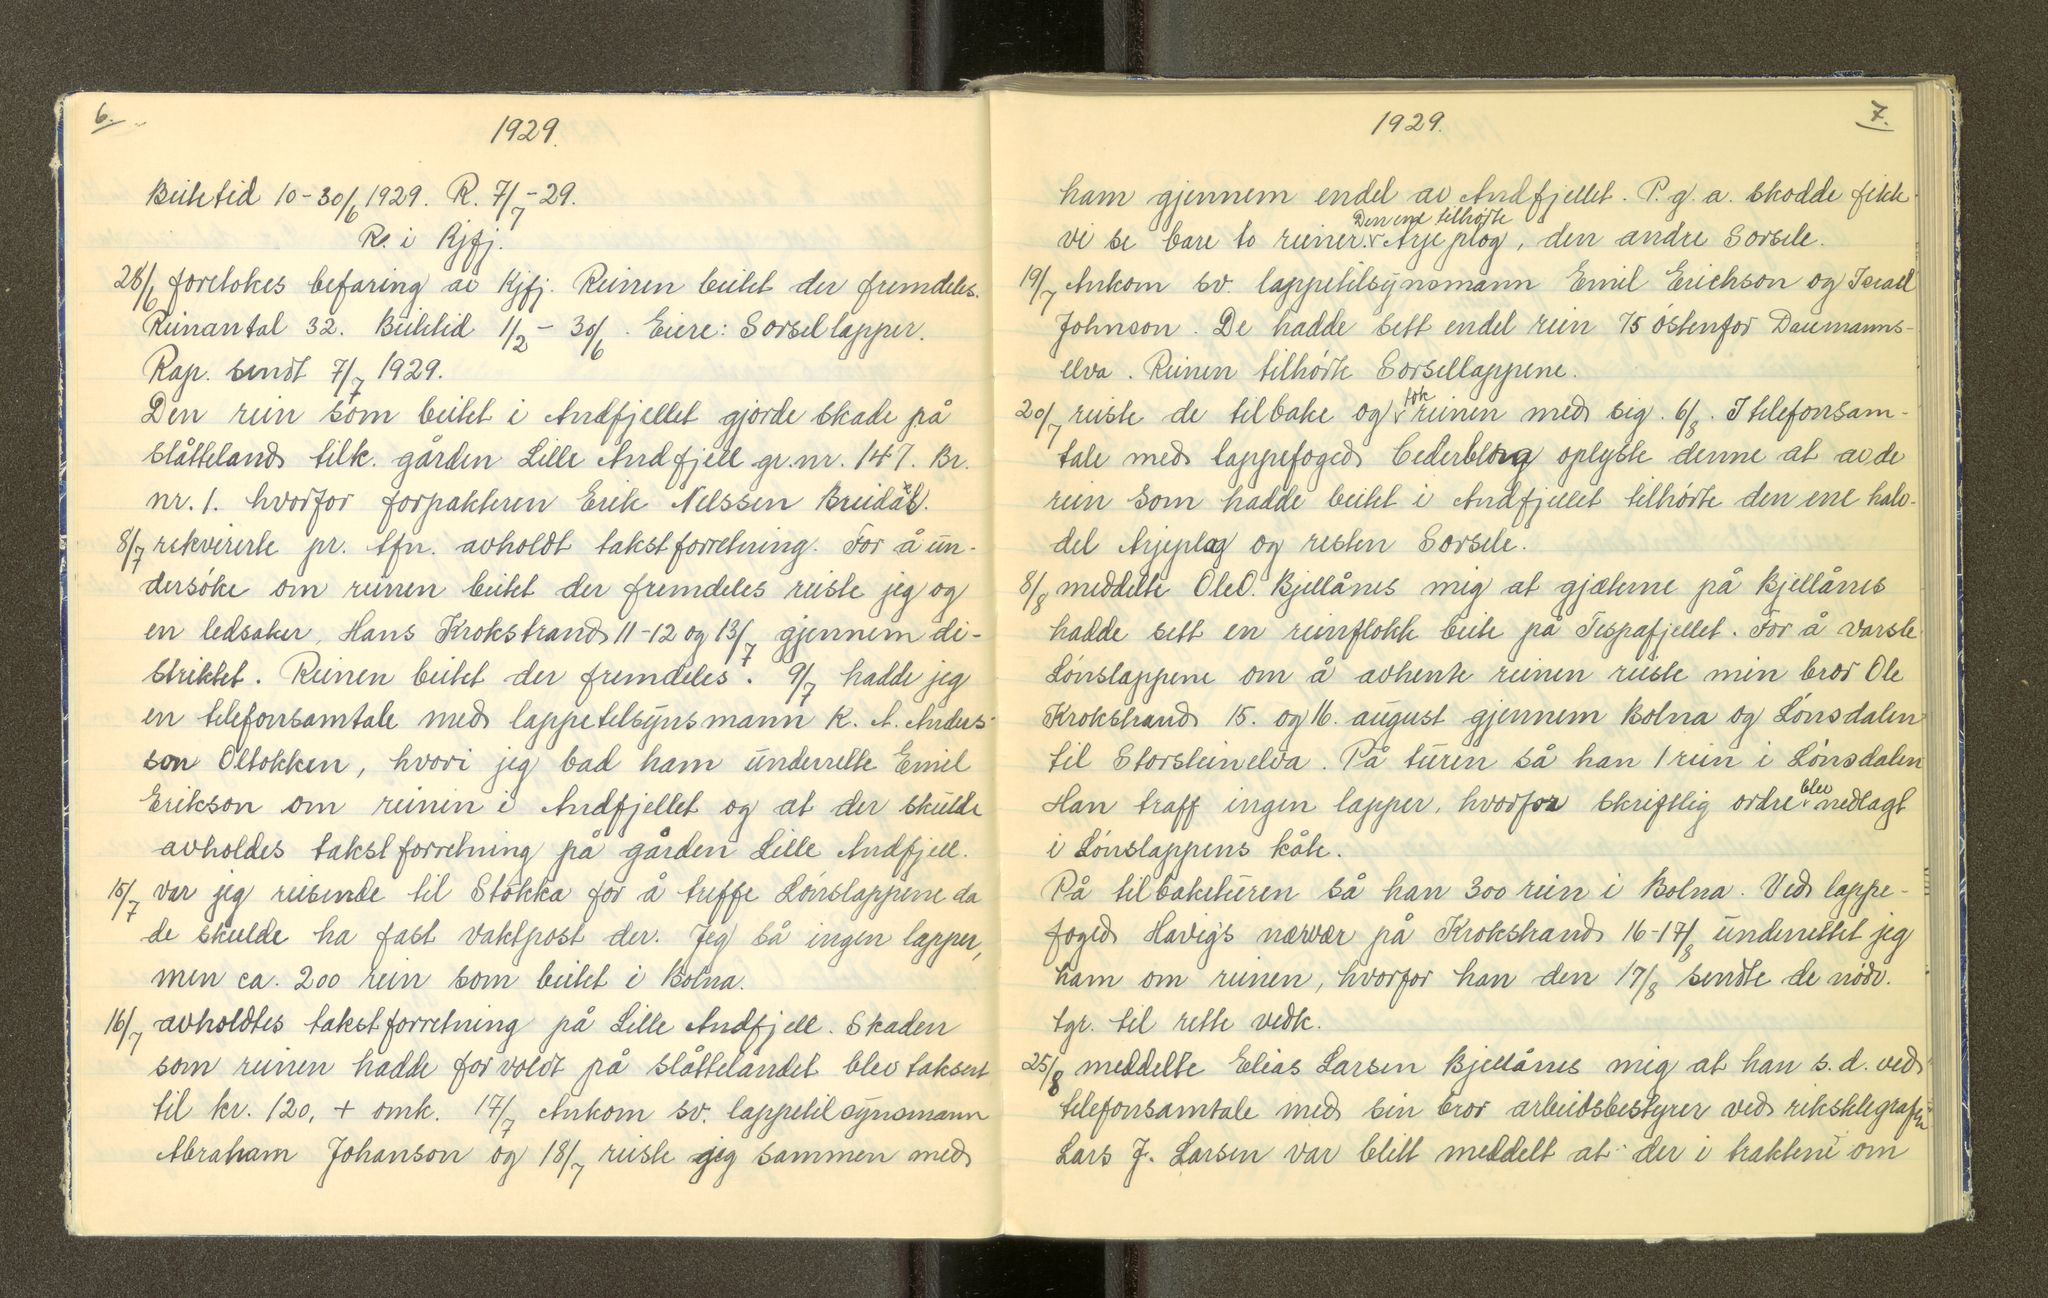 6.
1929.
Beitetid 10-30/6 1929. R. 7/7-29.
Re. i Kjfj.
28/6 foretokes befaring av Kjfj. Reinen beitet der fremdeles.
Reinantal 32. Beitetid 1/2 - 30/6. Eiere: Sorsellapper.
Rap. sendt 7/7 1929.
Den rein som beitet i Andfjellet gjorde skade på
slåtteland tilh. gården Lille Andfjell gr.nr. 147. Br.
nr. 1. hvorfor forpakteren Erik Nelssen Breidål.
8/7 rekvirerte pr. tfn. avholdt takstforretning. For å un-
dersøke om reinen beitet der fremdeles reiste jeg og
en ledsaker, Hans Krokstrand 11-12 og 13/7 gjennem di-
striktet. Reinen beitet der fremdeles. 9/7 hadde jeg
en telefonsamtale med lappetilsynsmann K. A. Anders-
son Oltokken, hvori jeg bad ham underrette Emil
Erikson om reinen i Andfjellet og at der skulde
avholdes takstforretning på gården Lille Andfjell.
15/7 var jeg reisende til Stokka for å treffe Lønslappene da
de skulde ha fast vaktpost der. Jeg så ingen lapper,
men ca. 200 rein som beitet i Bolna.
16/7 avholdtes takstforretning på Lille Andfjell. Skaden
som reinen hadde forvoldt på slåttelandet blev taksert
til kr. 120, + omk. 17/7 Ankom sv. lappetilsynsmann
Abraham Johanson og 18/7 reiste jeg sammen med
7.
1929.
ham gjennem endel av Andfjellet. P.g.a. skodde fikk
vi se bare to reiner. Den ene tilhørte Arjeplog, den andre Sorsele.
19/7 Ankom sv. lappetilsynsmann Emil Erichson og Israel
Johnson. De hadde sett endel rein 75 østenfor Daumanns-
elva. Reinen tilhørte Sorsellappene.
20/7 reiste de tilbake og tok reinen med sig. 6/8. I telefonsam-
tale med lappefoged Cederblong oplyste denne at av de
rein som hadde beitet i Andfjellet tilhørte den ene halv-
del Arjeplog og resten Sorsele.
8/8 meddelte Ole O. Bjellånes mig at gjæterne på Bjellånes
hadde sett en reinflokk beite på Tespafjellet. For å varsle
Lønslappene om å avhente reinen reiste min bror Ole
Krokstrand 15. og 16. august gjennem Bolna og Lønsdalen
til Storsteinelva. På turen så han 1 rein i Lønsdalen
Han traff ingen lapper, hvorfor skriftlig ordre blev nedlagt
i Lønslappens kåte.
På tilbaketuren så han 300 rein i Bolna. Ved lappe-
foged Havigs nærvær på Krokstrand 16-17/8 underrettet jeg
ham om reinen, hvorfor han den 17/8 sendte de nødv.
tgr. til rette vedk.
25/8 meddelte Elias Larsen Bjellånes mig at han s.d. ved
telefonsamtale med sin bror arbeidsbestyrer ved rikstelegrafen
Lars J. Larsen var blitt meddelt at der i traktene om